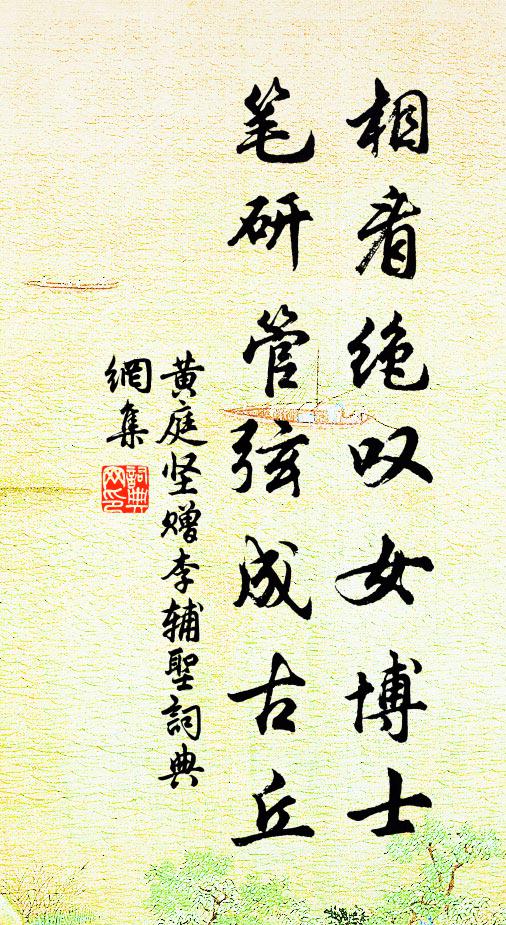 相看绝叹女博士
笔研管弦成古丘
黄庭坚赠李辅聖詞典
網集